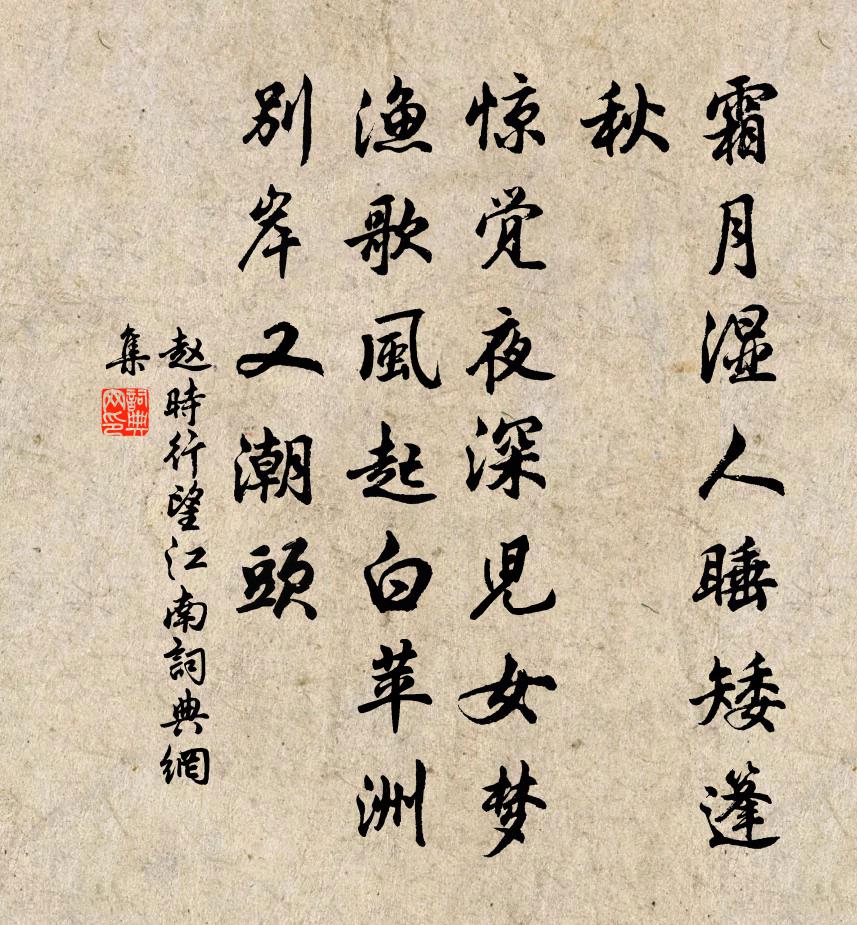 霜月湿人睡矮篷
秋
惊觉夜深児女梦
渔歌風起白苹洲
别岸又潮頭
赵時行望江南詞典網
集
詞典網印